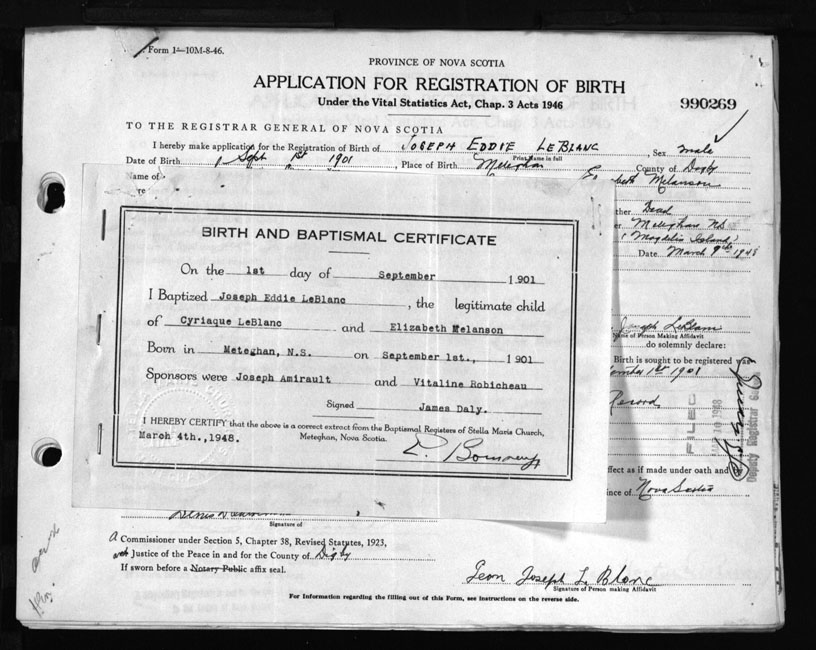 Form 1—10M-8-46.
PROVINCE OF NOVA SCOTIA
APPLICATION FOR REGISTRATION OF BIRTH
Under the Vital Statistics Act, Chap. 3 Acts 1946
990269
TO THE REGISTRAR GENERAL OF NOVA SCOTIA
I hereby make application for the Registration of Birth of JOSEPH EDDIE LEBLANC, Sex male
Print Name in full
Date of Birth Sept 1st 1901, Place of Birth Meteghan County of Digby
Name of Melanson
Dead
Meteghan NS
Date March 9th 1948
BIRTH AND BAPTISMAL CERTIFICATE
On the 1st day of September 1901
I Baptized Joseph Eddie LeBlanc, the legitimate child
of Cyriaque LeBlanc and Elizabeth Melanson
Born in Meteghan, N.S. on September 1st., 1901
Sponsors were Joseph Amirault and Vitaline Robicheau
Signed James Daly.
I HEREBY CERTIFY that the above is a correct extract from the Baptismal Registers of Stella Maris Church,
March 4th.,1948. Meteghan, Nova Scotia.
Joseph LeBlanc
Name of Person Making Affidavit
do solemnly declare:
Birth is sought to be registered was
1st 1901
Record.
FILED
1948
Deputy Registrar
effect as if made under oath and by
Nova Scotia
Signature of
A Commissioner under Section 5, Chapter 38, Revised Statutes, 1923,
Justice of the Peace in and for the County of Digby
If sworn before a Notary Public affix seal.
Leon Joseph Le Blanc
Signature of Person making Affidavit
For Information regarding the filling out of this Form, see instructions on the reverse side.